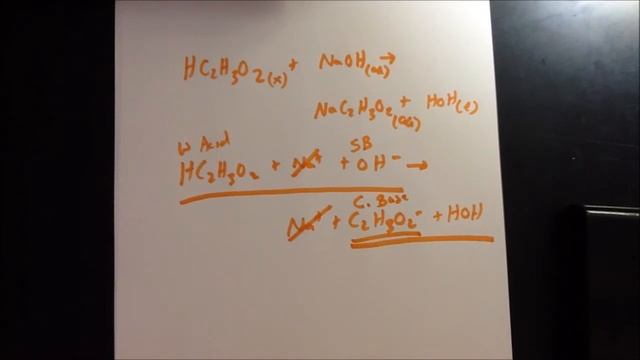 HC2H3O2(x) + NaOH(aq) →
NaC2H3O2(aq) + HOH(l)
W Acid SB
HC2H3O2 + Na+ + OH- →
C. Base
Na+ + C2H3O2- + HOH